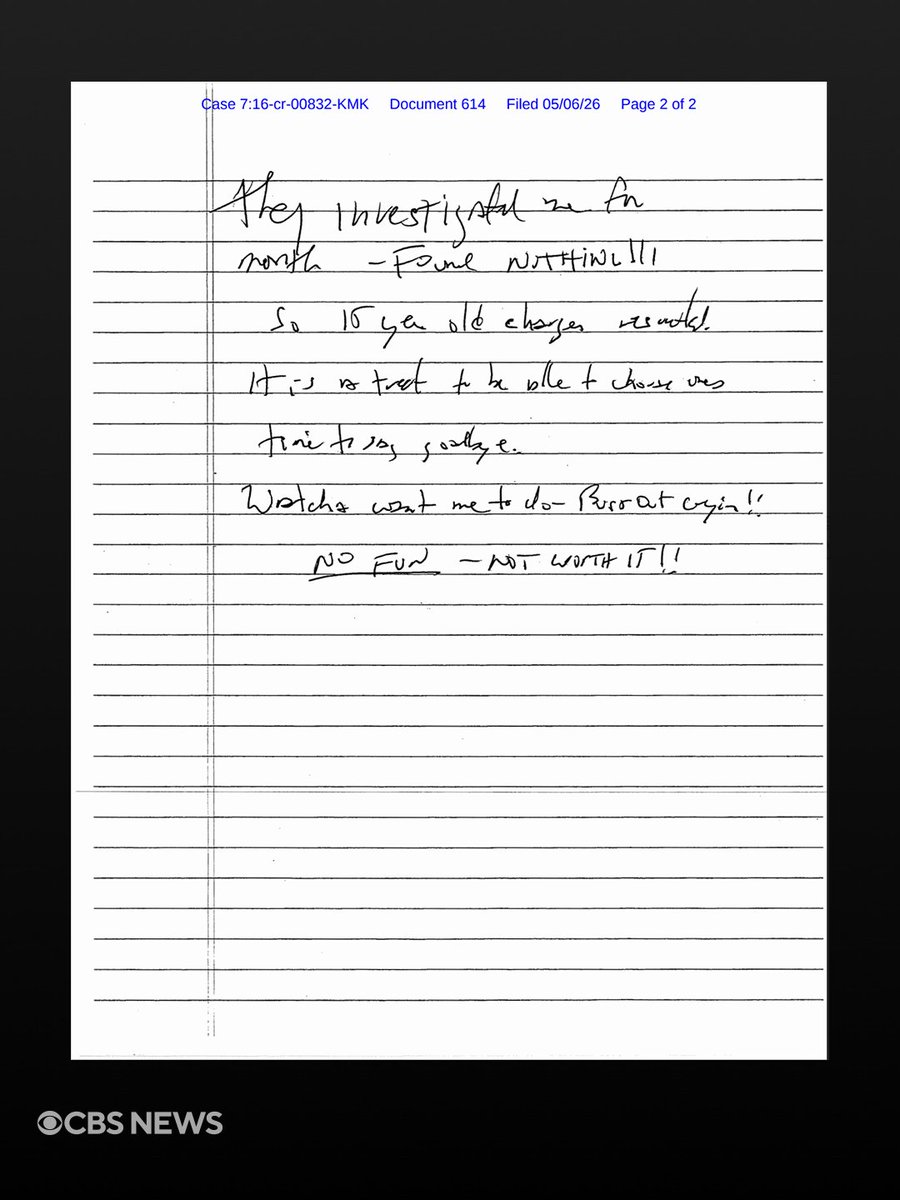 Case 7:16-cr-00832-KMK Document 614 Filed 05/06/26 Page 2 of 2
They investigated me for
month - Found NOTHING!!!
So 15 year old charges resulted.
It is a treat to be able to choose
time to say goodbye.
Watcha want me to do - Burst out cryin!!
NO FUN - NOT WORTH IT!!
CBS NEWS